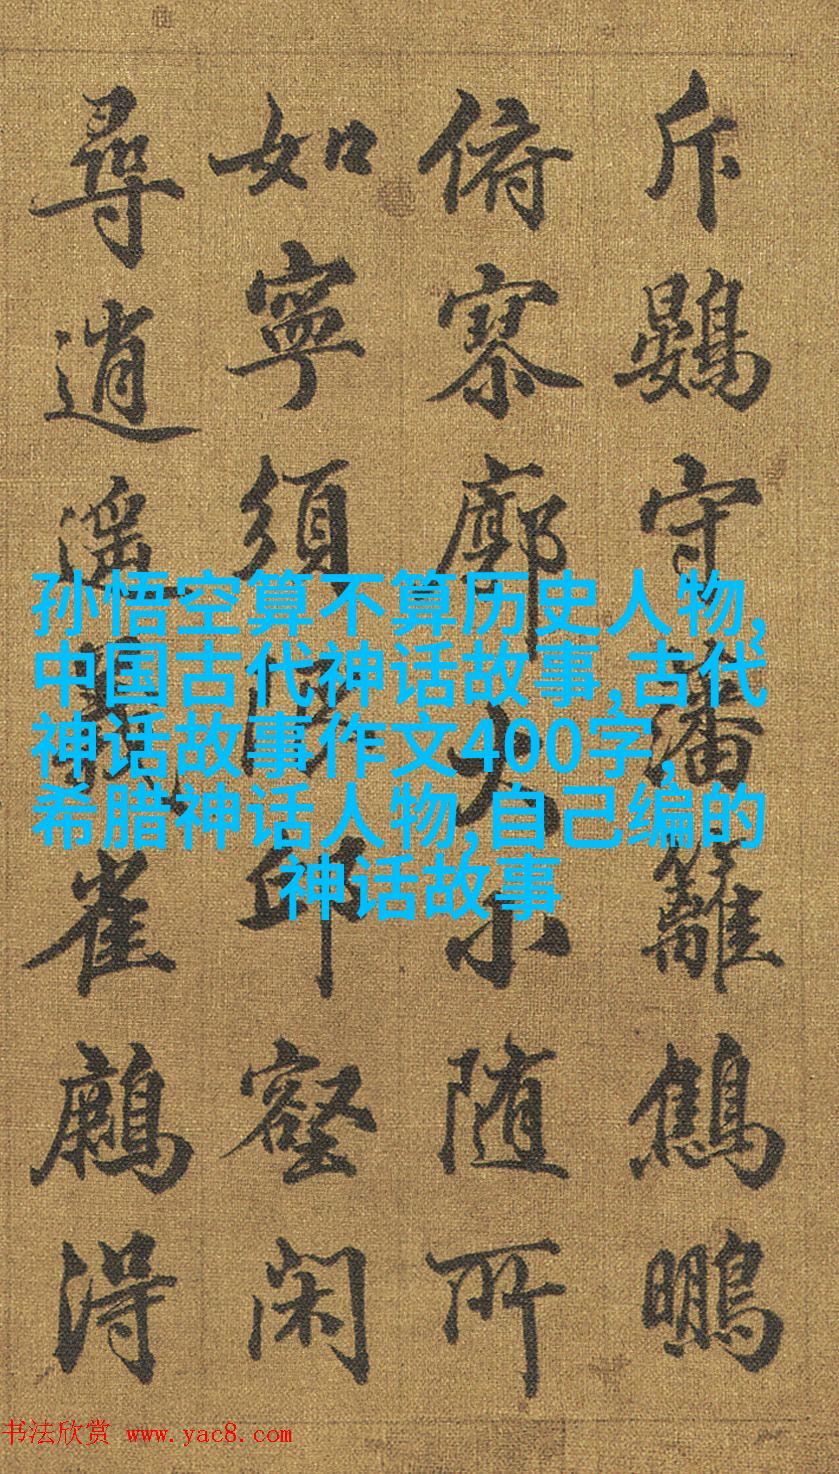 斥鷃守藩籬鷦鵬
俯寥廓大小随所
如寧須邱壑闲
尋逍遥雀得
孙悟空算不算历史人物,
中国古代神话故事,古代
神话故事作文400字,
希腊神话人物,自己编的
神话故事
书法欣赏 www.yac8.com